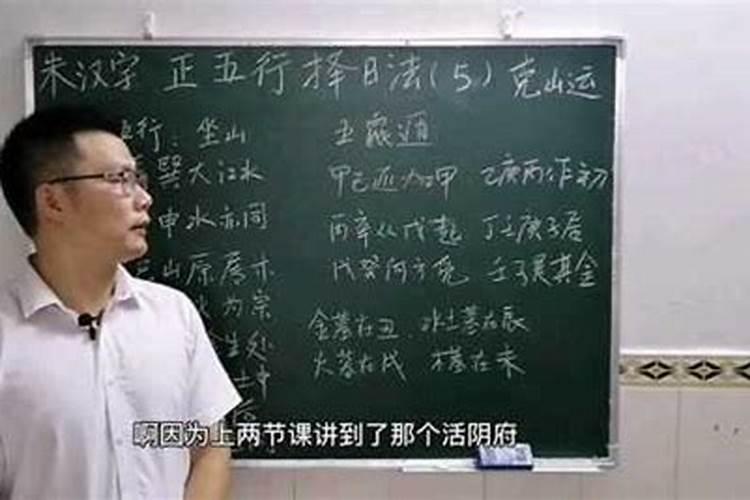 朱汉字 正五行择日法(5) 克山运
行：坐山 五鼠遁
巽大江水 甲己还加甲 乙庚丙作初
申水亦同 丙辛从戊起 丁壬庚子居
山原属木 戊癸何方觅 壬子是其金
为宗
金墓在丑 水土墓在辰
生处 火墓在戌 木墓在未
啊因为上两节课讲到了那个活阴府